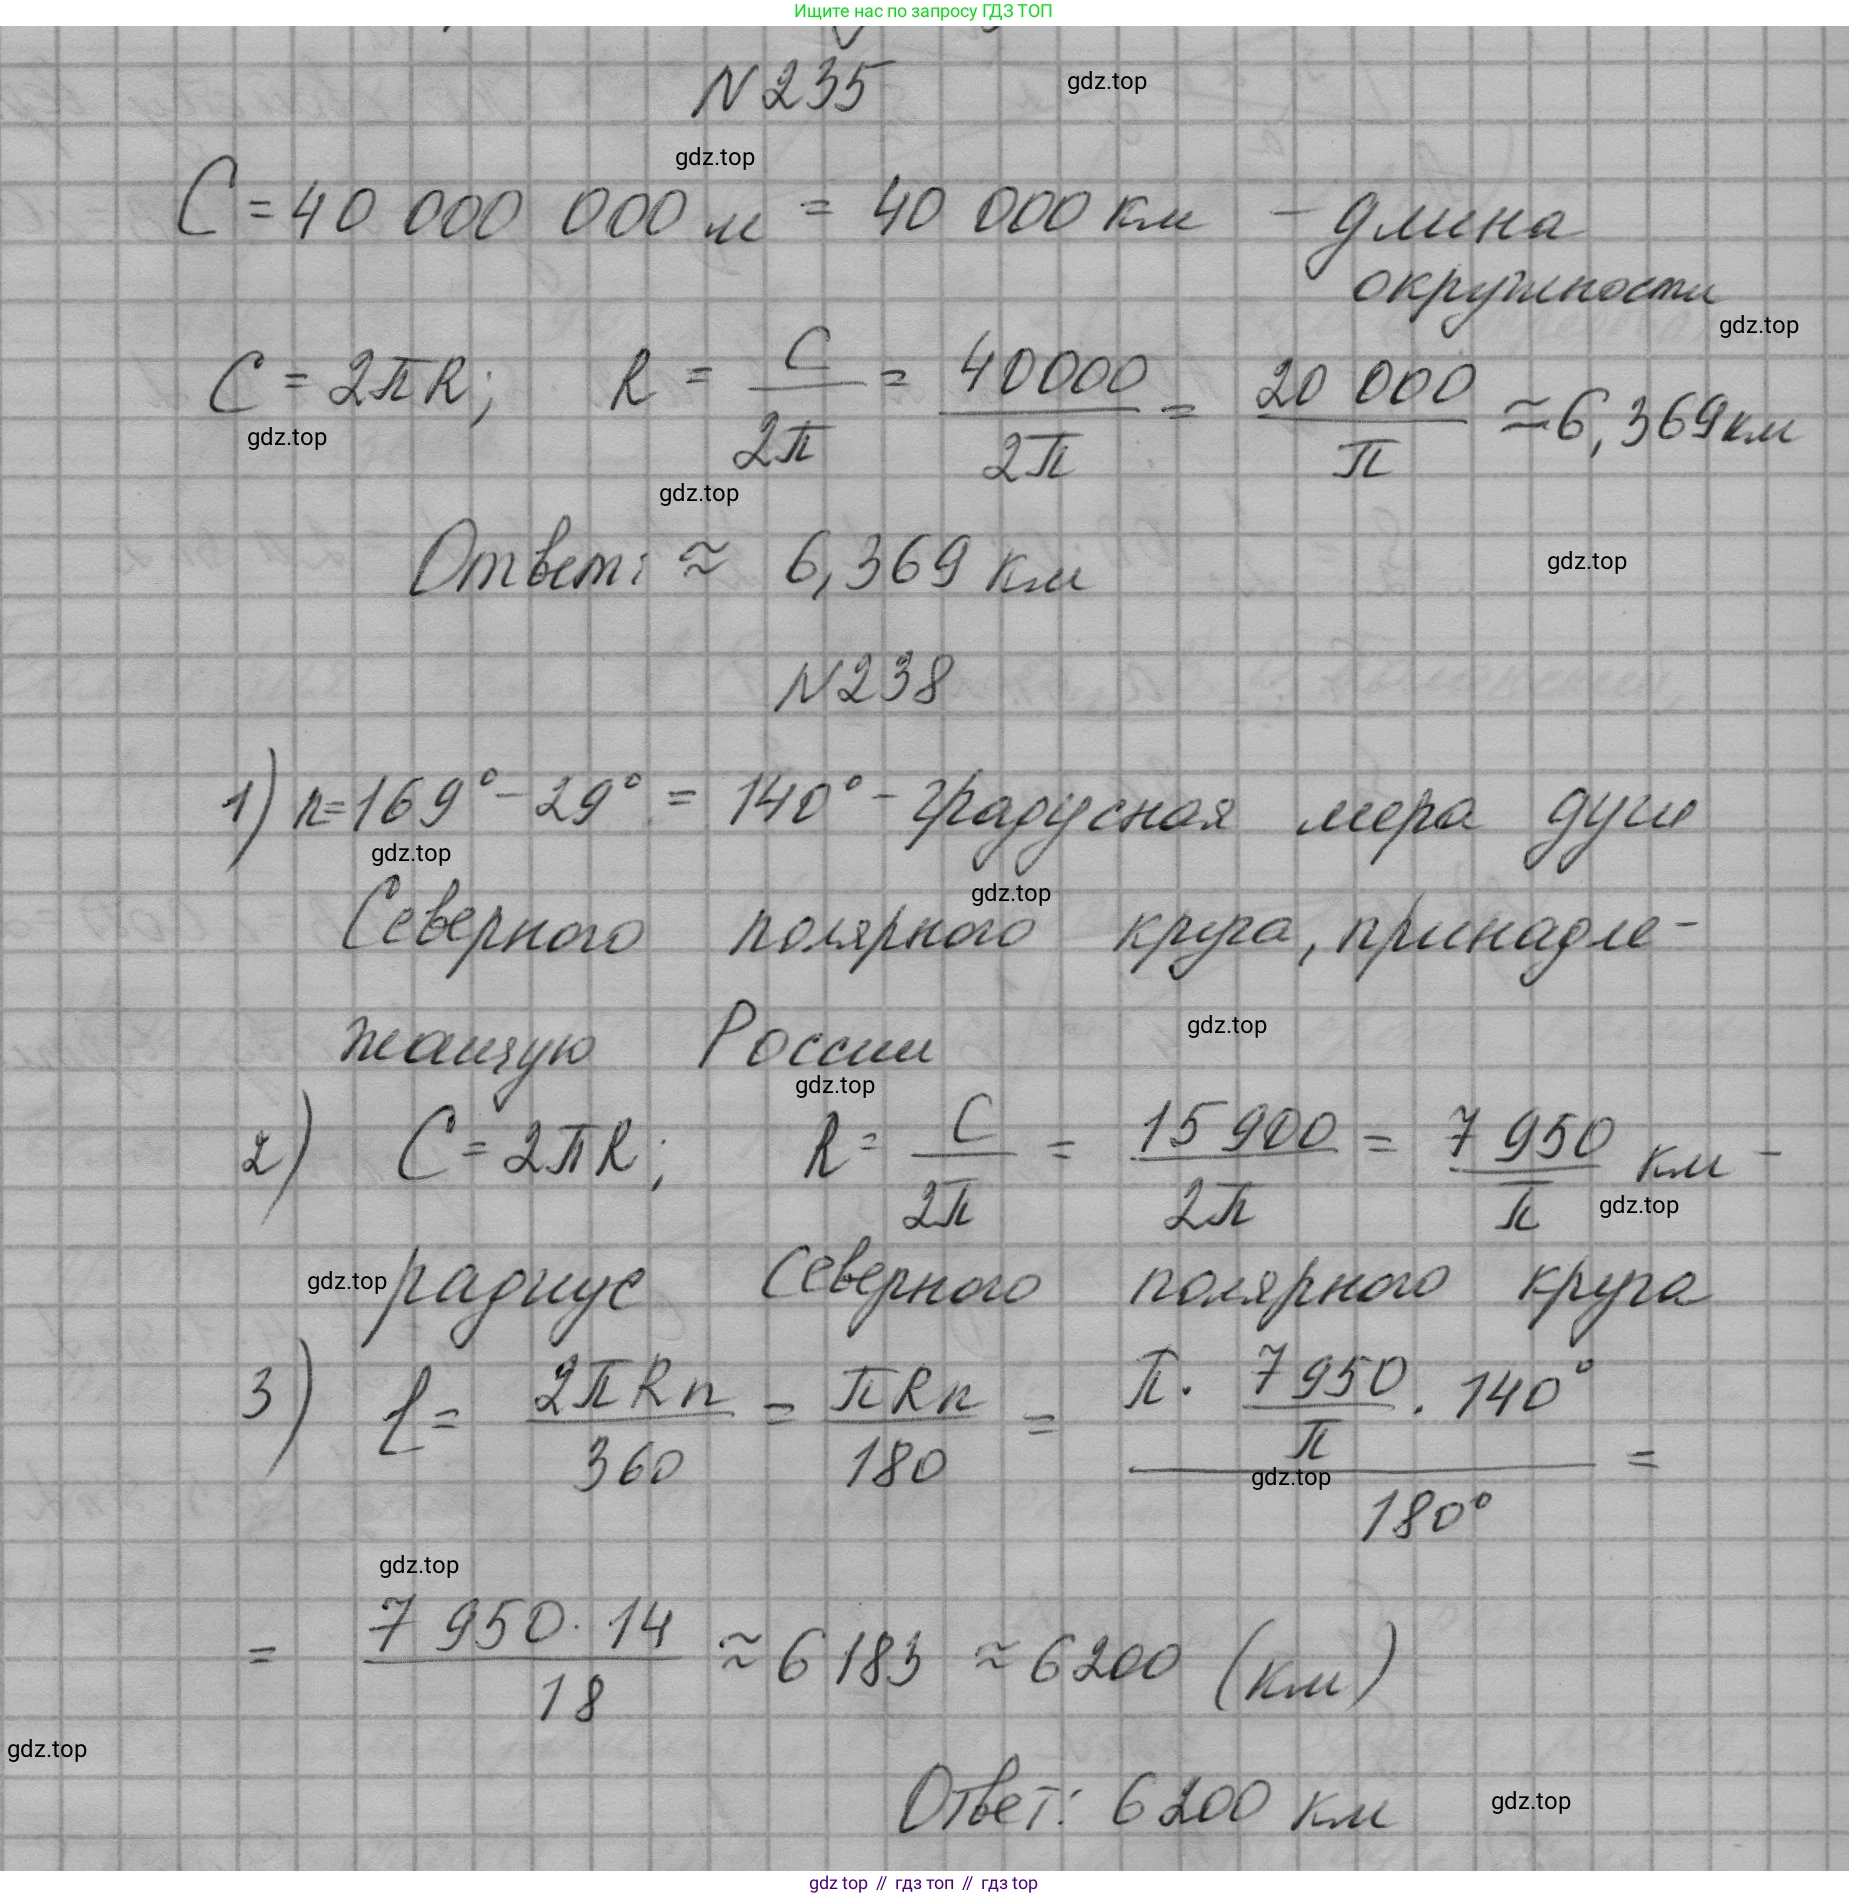 Ищите нас по запросу ГДЗ ТОП
N235
gdz.top
gdz.top
C = 40 000 000 м = 40 000 км - длина
окружности
gdz.top
C = 2πR; R = C/2π = 40000/2π = 20 000/π ≈ 6,369 км
gdz.top
gdz.top
Ответ: ≈ 6,369 км
gdz.top
N238
1) n = 169° - 29° = 140° - градусная мера дуги
gdz.top
gdz.top
Северного полярного круга, принадле-
жащую России
gdz.top
gdz.top
2) C = 2πR; R = C/2π = 15 900/2π = 7 950/π км -
gdz.top
gdz.top
радиус Северного полярного круга
3) ℓ = 2πRn/360 = πRn/180 = π · 7 950/π · 140° / 180° =
gdz.top
gdz.top
= 7 950 · 14/18 ≈ 6 183 ≈ 6200 (км)
gdz.top
Ответ: 6200 км
gdz.top
gdz top // гдз топ // гдз top